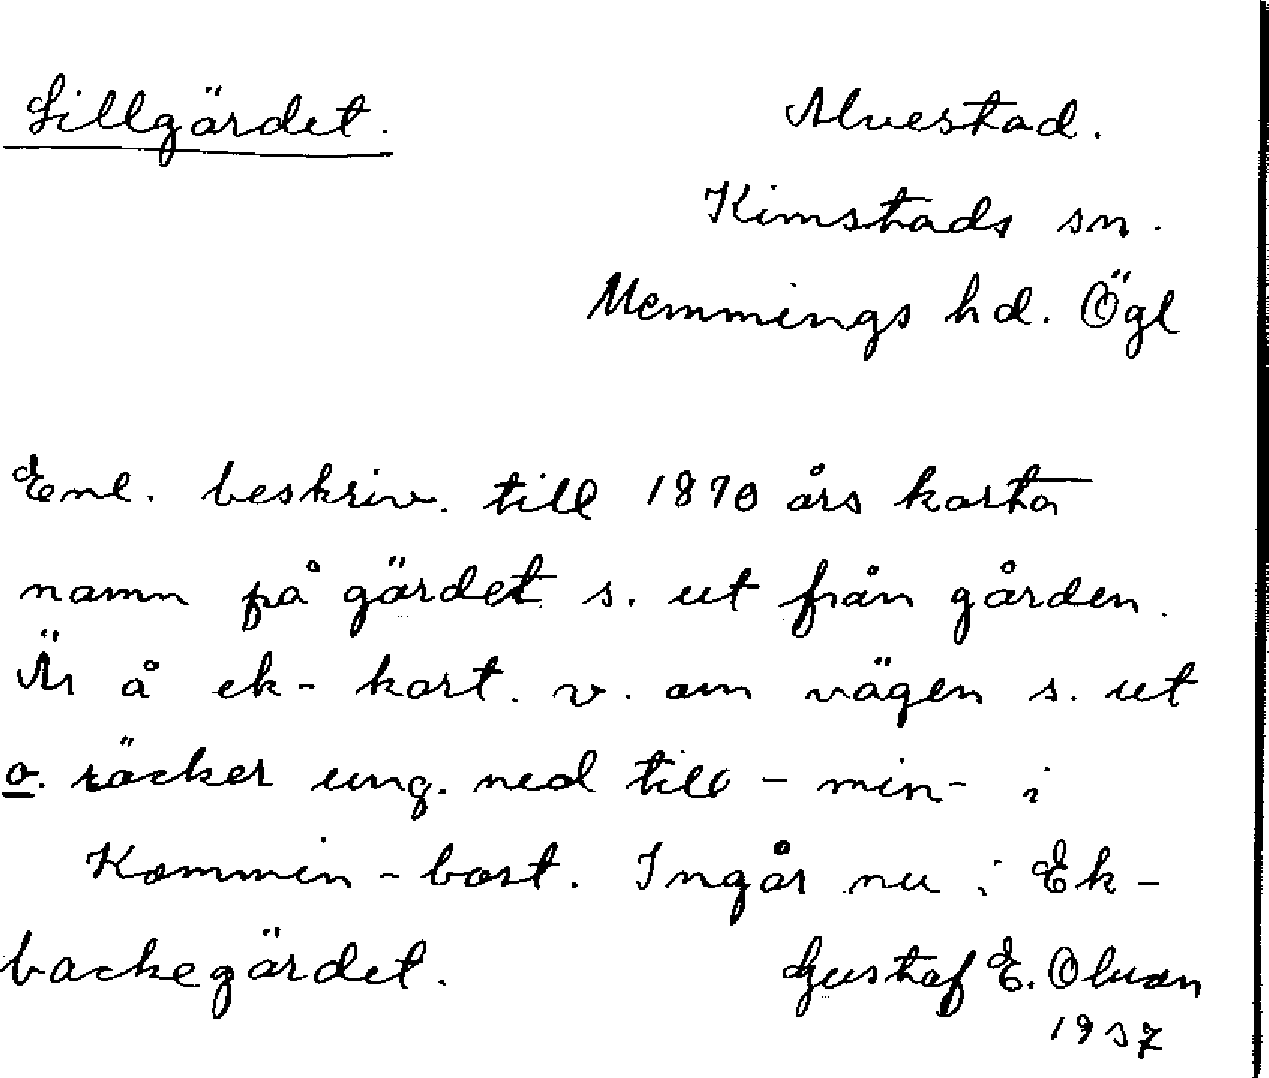 Lillgärdet.
Alvestad.
Kimstads sn.
Memmings hd. Ögl
Enl. beskriv. till 1870 års karta
namn på gärdet s. ut från gården.
Är å ek-kart. v. om vägen s. ut
o. räcker ung. ned till -min- i
Kommin-bost. Ingår nu i Ek-
backegärdet.
Gustaf E. Olson
1937